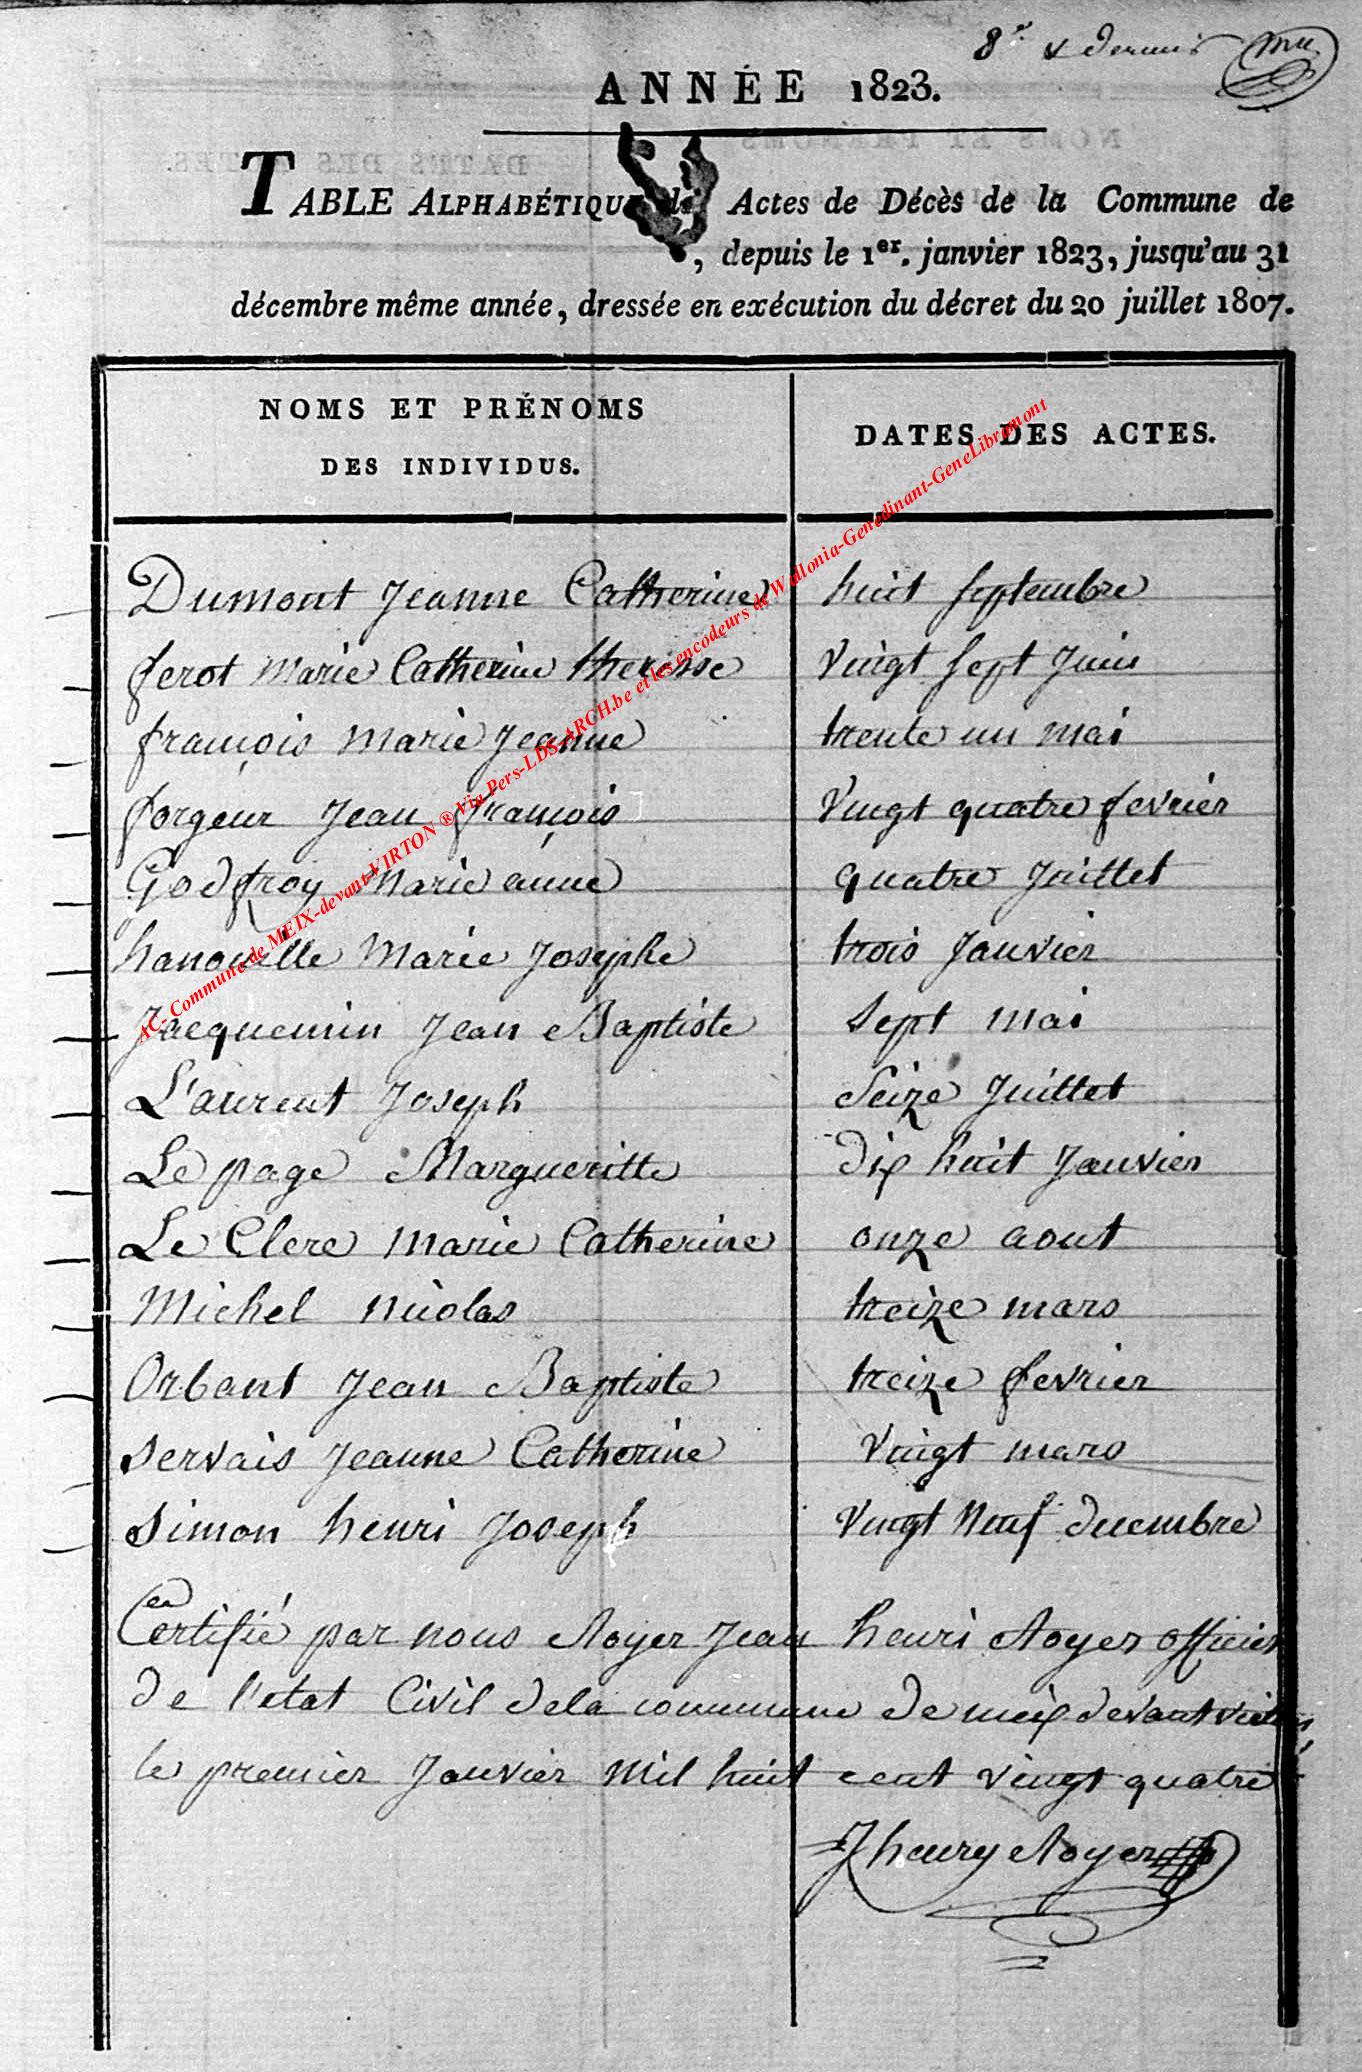 8e & dernier
ANNÉE 1823.
TABLE ALPHABÉTIQUE des Actes de Décès de la Commune de
, depuis le 1er. janvier 1823, jusqu'au 31
décembre même année, dressée en exécution du décret du 20 juillet 1807.
NOMS ET PRÉNOMS
DES INDIVIDUS.
DATES DES ACTES.
Dumont Jeanne Catherine huit Septembre
ferot Marie Catherine theresse Vingt Sept Juin
françois Marie Jeanne trente un mai
forgeur Jean françois Vingt quatre fevrier
Godfroy Marie anne quatre Juillet
hanouille Marie Josephe trois Janvier
Jacquemin Jean Baptiste Sept mai
L'aurent Joseph Seize Juillet
Le page Margueritte Dix huit Janvier
Le Clere Marie Catherine onze aout
Michel Nicolas treize mars
Orbant Jean Baptiste treize fevrier
Servais Jeanne Catherine Vingt mars
Simon henri Joseph Vingt Neuf decembre
Certifié par nous Noyer Jean henri Noyer officier
de l'etat Civil dela commune de meix devant virton
le premier Janvier Mil huit cent vingt quatre
Jhenry Noyer
AC- Commune de MEIX-devant-VIRTON ® Via Pers-LDS-ARCH.be et les encodeurs de Wallonia-Genedinant-GeneLibramont